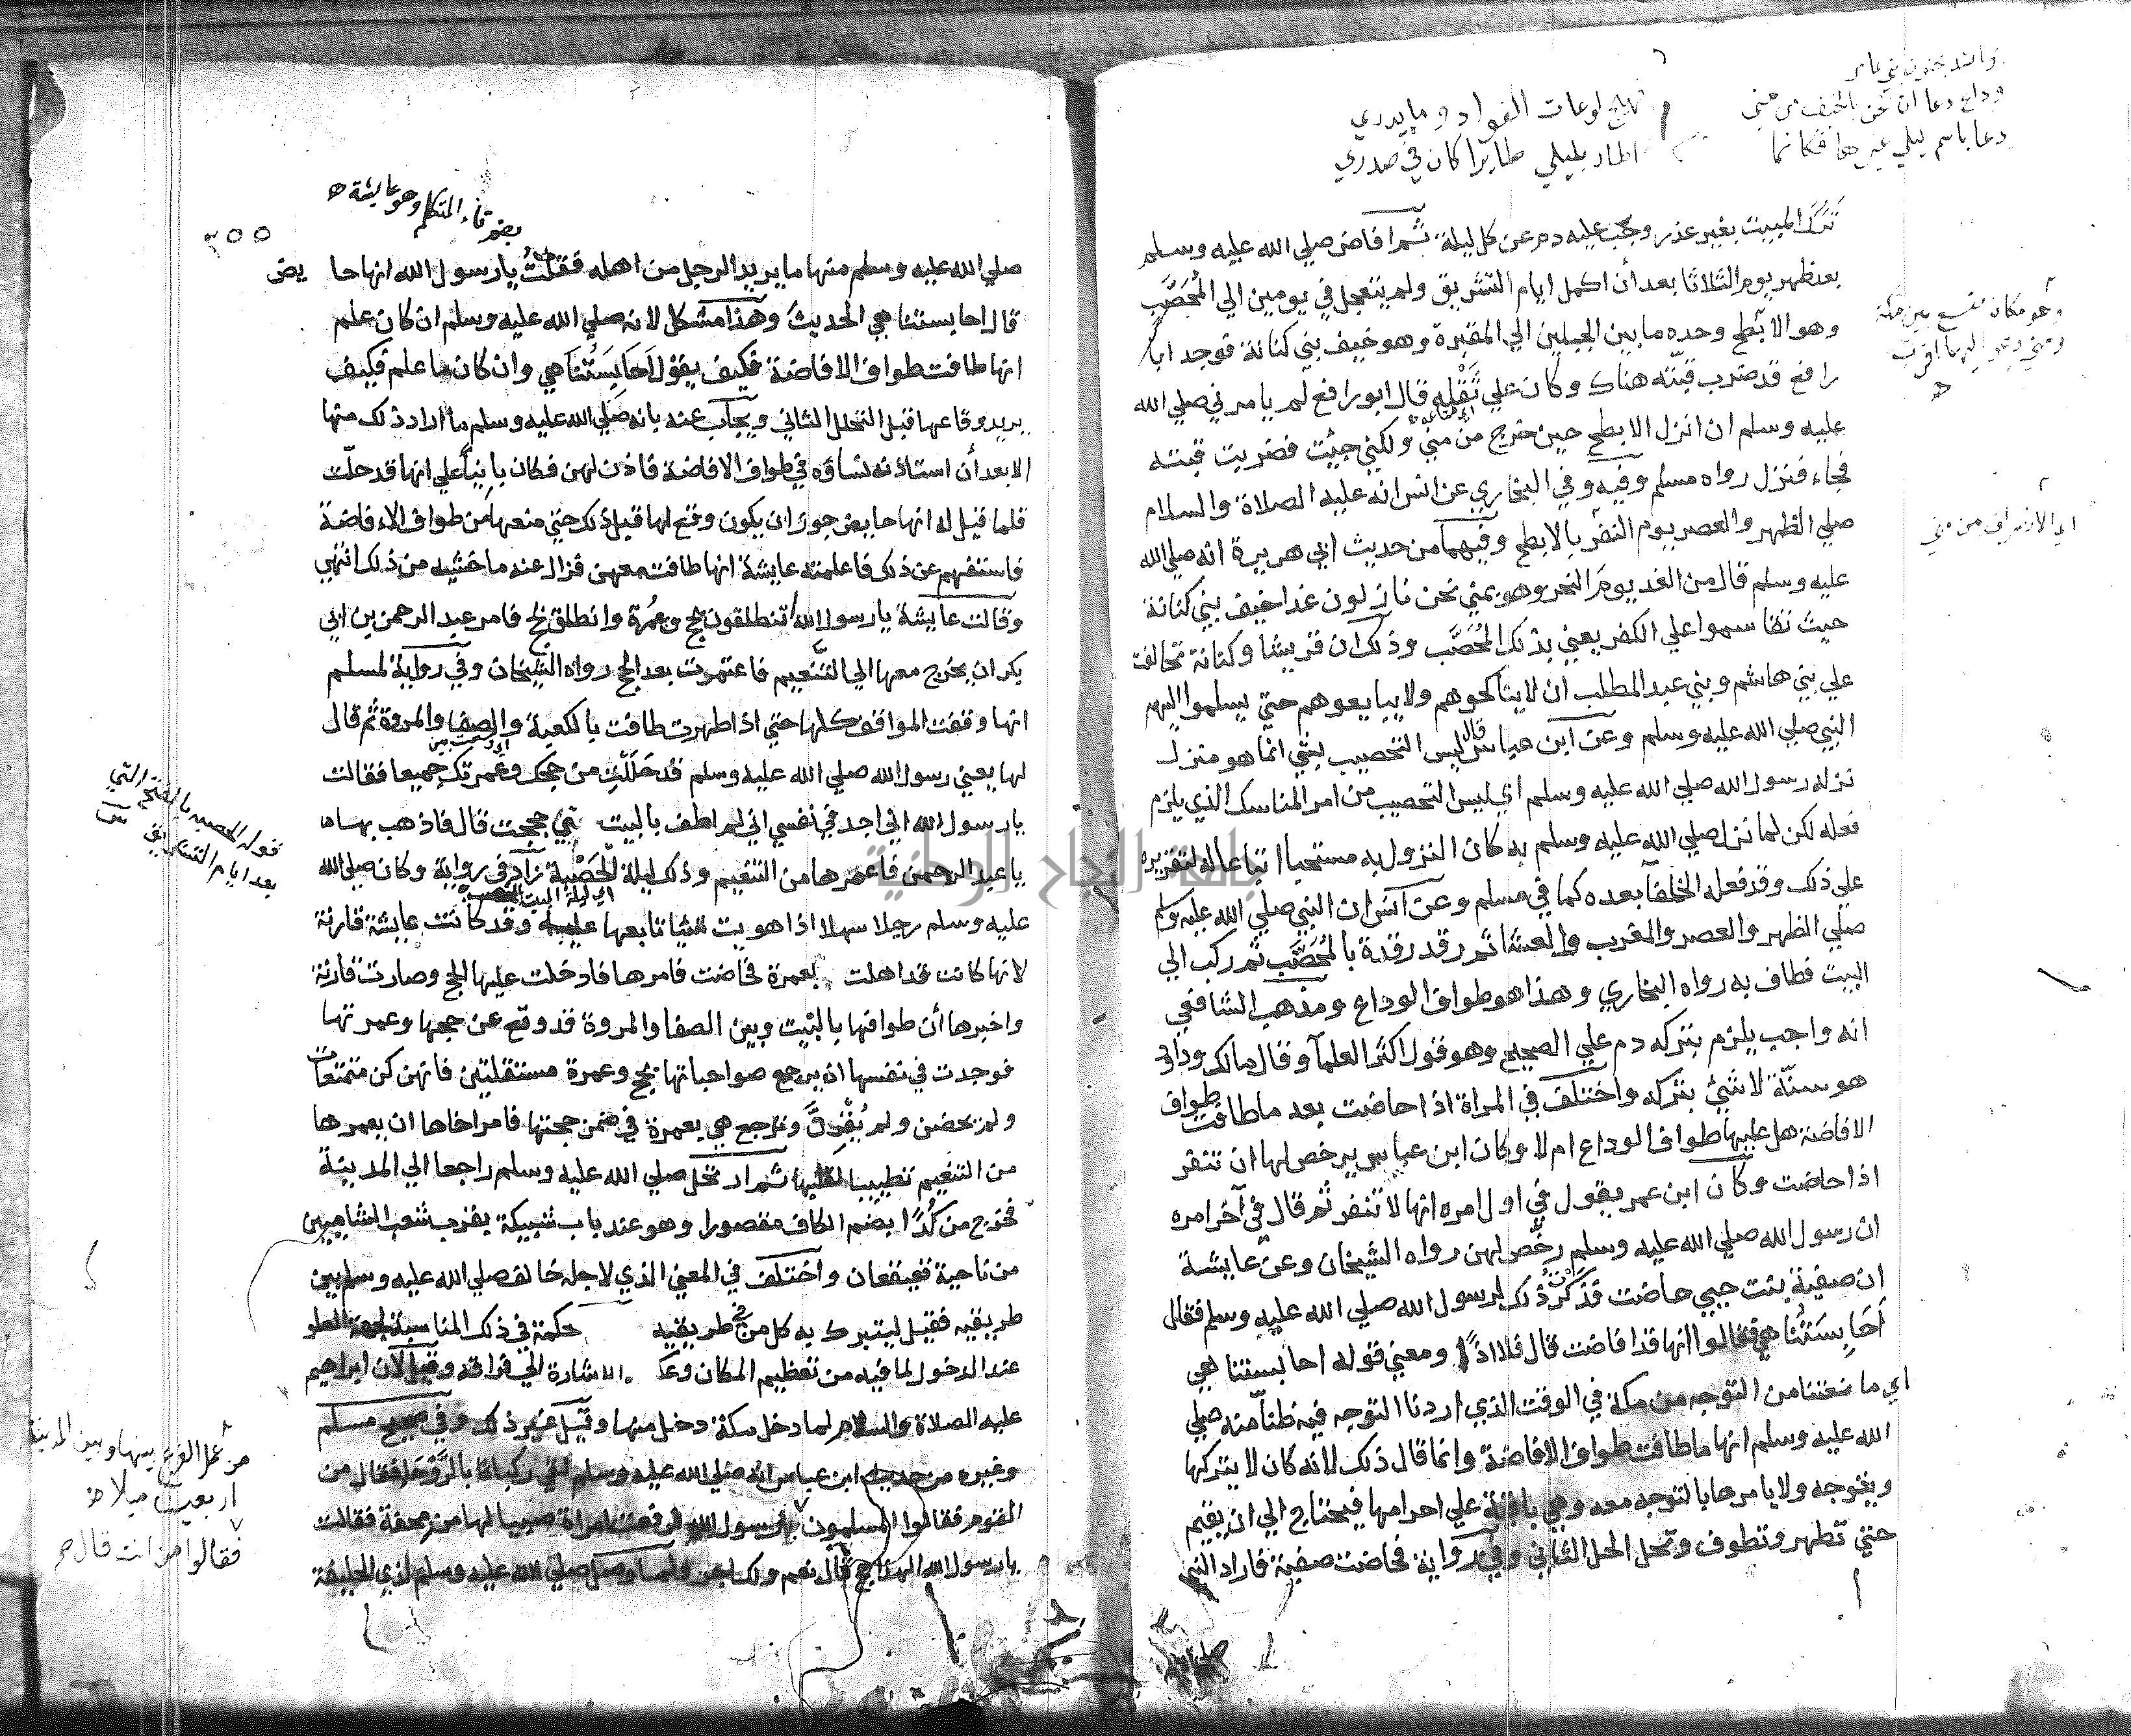 وانشد مجنون بني عامر
وداع دعا اذ نحن بالخيف من مني
دعا باسم ليلي غيرها فكانما
تهيج لوعات الفواد وما يدري
اطار بليلي طايرا كان في صدري
ترك المبيت بغير عذر وجب عليه دم عن كل ليلة ثم افاض صلي الله عليه وسلم
بعد ظهر يوم الثلاثا بعد أن اكمل ايام التشريق ولم يتعجل في يومين الي المُحَصَّب
وهو الابطح وحده ما بين الجبلين الي المقبرة وهو خيف بني كنانة فوجد ابا
رافع قد ضرب قبته هناك وكان علي ثَقْلِه قال ابو رافع لم يامرني صلي الله
عليه وسلم ان انزل الابطح حين خرج من مني ولكني جيئت فضربت قبته
فجاء فنزل رواه مسلم وفيه وفي البخاري عن انس انه عليه الصلاة والسلام
صلي الظهر والعصر يوم النفر بالابطح وفيهما من حديث ابي هريرة انه صلي الله
عليه وسلم قال من الغد يوم النحر وهو بمني نحن نازلون غدا خيف بني كنانة
حيث تقاسموا علي الكفر يعني بذلك المُحَصَّب وذلك ان قريشا وكنانة تحالفت
علي بني هاشم وبني عبد المطلب ان لا يناكحوهم ولا يبايعوهم حتي يسلموا اليهم
النبي صلي الله عليه وسلم وعن ابن عباس قال ليس التحصيب بشي انما هو منزل
نزله رسول الله صلي الله عليه وسلم اي ليس التحصيب من امر المناسك الذي يلزم
فعله لكن لما نزل صلي الله عليه وسلم به كان النزول به مستحبا اتباعا له لتقريره
علي ذلك وقد فعله الخلفا بعده كما في مسلم وعن انس ان النبي صلي الله عليه وسلم
صلي الظهر والعصر والمغرب والعشا ثم رقد رقدة بالمُحَصَّب ثم ركب الي
البيت فطاف به رواه البخاري وهذا هو طواف الوداع ومذهب الشافعي
انه واجب يلزم بتركه دم علي الصحيح وهو قول اكثر العلما وقال مالك وداود
هو سنّة لا شيئ بتركه واختلف في المراة اذا حاضت بعد ما طافت طواف
الافاضة هل عليها طواف الوداع ام لا وكان ابن عباس يرخص لها ان تنفر
اذا حاضت وكان ابن عمر يقول في اول امره انها لا تنفر ثم قال في آخر امره
ان رسول الله صلي الله عليه وسلم رخّص لهن رواه الشيخان وعن عايشة
ان صفية بنت حيي حاضت فذكرت ذلك لرسول الله صلي الله عليه وسلم فقال
أَحَابِسَتُنا هي فقالوا انها قد افاضت قال فلا اذًا ومعني قوله احابستنا هي
اي مانعتنا من التوجه من مكة في الوقت الذي اردنا التوجه فيه ظنا منه صلي
الله عليه وسلم انها ما طافت طواف الافاضة وانما قال ذلك لانه كان لا يتركها
ويتوجه ولا يامرها بالتوجه معه وهي باقية علي احرامها فيحتاج الي ان يقيم
حتي تطهر وتطوف وتحل الحل الثاني وفي رواية فحاضت صفية فاراد النبي
وهو مكان متسع بين مكة
ومني وهو اليها اقرب
اي الانصراف من مني
بضم تاء المتكلم وهو عايشة
٢٥٥
صلي الله عليه وسلم منها ما يريد الرجل من اهله فقلتُ يا رسول الله انها حايض
قال احابستنا هي الحديث وهذا مشكل لانه صلي الله عليه وسلم ان كان علم
انها طافت طواف الافاضة فكيف يقول أحَابِسَتُنا هي وان كان ما علم فكيف
يريد وقاعها قبل التحلل الثاني ويجاب عنه بانه صلي الله عليه وسلم ما اراد ذلك منها
الا بعد أن استاذنه نساؤه في طواف الافاضة فاذن لهن فكان بانيا علي انها قد حلّت
فلما قيل له انها حايض جوز ان يكون وقع لها قبل ذلك حتي منعها من طواف الافاضة
فاستفهم عن ذلك فاعلمته عايشة انها طافت معهن فزال عنه ما خشيه من ذلك انتهي
وقالت عايشة يا رسول الله اتنطلقون بحج وعمرة وانطلق بحج فامر عبد الرحمن بن ابي
بكر ان يخرج معها الي التنعيم فاعتمرت بعد الحج رواه الشيخان وفي رواية لمسلم
انها وقفت المواقف كلها حتي اذا طهرت طافت بالكعبة والصفا والمروة ثم قال
لها يعني رسول الله صلي الله عليه وسلم قد حَلَلْتِ من حجك وعمرتك جميعا فقالت
يا رسول الله اني اجد في نفسي اني لم اطف بالبيت حتي حججت قال فاذهب بها
يا عبد الرحمن فاعمرها من التنعيم وذلك ليلة الحَصْبَة زاد في رواية وكان صلي الله
عليه وسلم رجلا سهلا اذا هويت شيئا تابعها عليه وقد كانت عايشة قارنة
لانها كانت قد اهلت بعمرة فحاضت فامرها فادخلت عليها الحج وصارت قارنة
واخبرها أن طوافها بالبيت وبين الصفا والمروة قد وقع عن حجها وعمرتها
فوجدت في نفسها ان يرجع صواحباتها بحج وعمرة مستقلتين فانهن كن متمتعات
ولم يحضن ولم يُقْرِنَّ وترجع هي بعمرة في ضمن حجتها فامر اخاها ان يعمرها
من التنعيم تطييبا لقلبها ثم ارتحل صلي الله عليه وسلم راجعا الي المدينة
فخرج من كُدًا بضم الكاف مقصورا وهو عند باب شبيكة بقرب شعب الشاميين
من ناحية قعيقعان واختلف في المعني الذي لاجله خالف صلي الله عليه وسلم بين
طريقيه فقيل ليتبرك به كل من في طريقيه حكمة في ذلك المناسبة لجهة العلو
عند الدخول لما فيه من تعظيم المكان وعكسه الاشارة الي فراقه وقيل لان ابراهيم
عليه الصلاة والسلام لما دخل مكة دخل منها وقيل غير ذلك وفي صحيح مسلم
وغيره من حديث ابن عباس انه صلي الله عليه وسلم لقي ركبانا بالرَّوْحا فقال من
القوم فقالوا المسلمون رسول الله فرفعت امراة صبيا لها من محفة فقالت
يا رسول الله الهذا حج قال نعم ولك اجر ولما وصل صلي الله عليه وسلم لذي الحليفة
قوله الحصبه بالفتح التي
بعد ايام التشريق
من عمل الفرع بينها وبين المدينة
اربعين ميلا
فقالوا من انت قال